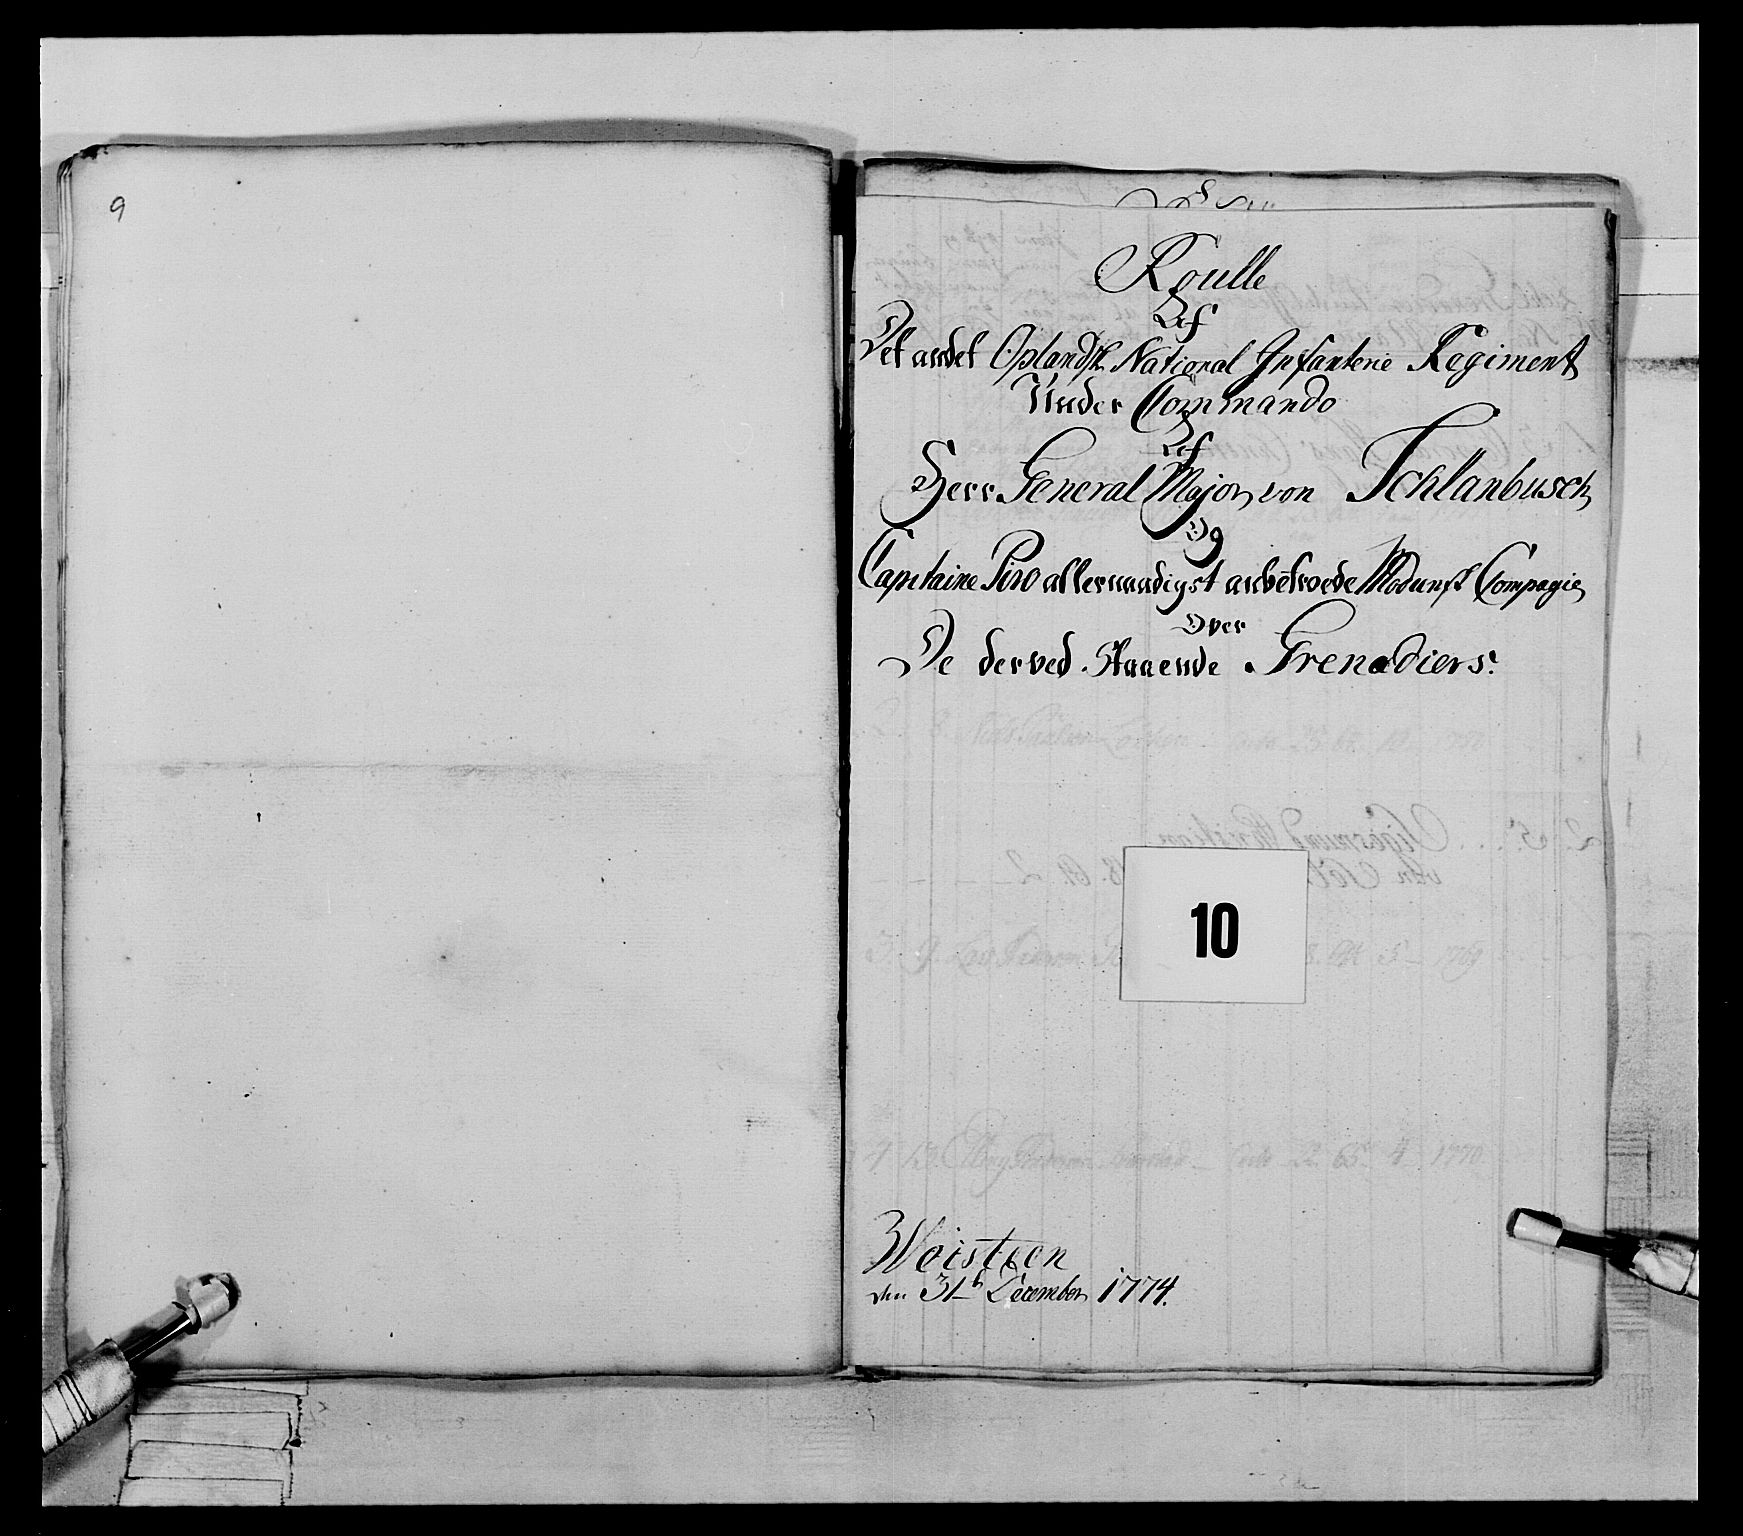 9
Roulle
Af
Det andet Oplandske National Infanterie Regiment
Under Commando
Af
Herr General Major von Schlanbusch
Og
Capitaine Piro allernaadigst anbetroede Modumske Compagie
Over
De derved Staaende Grenadiers.
10
Woisteen
den 31te December 1774.